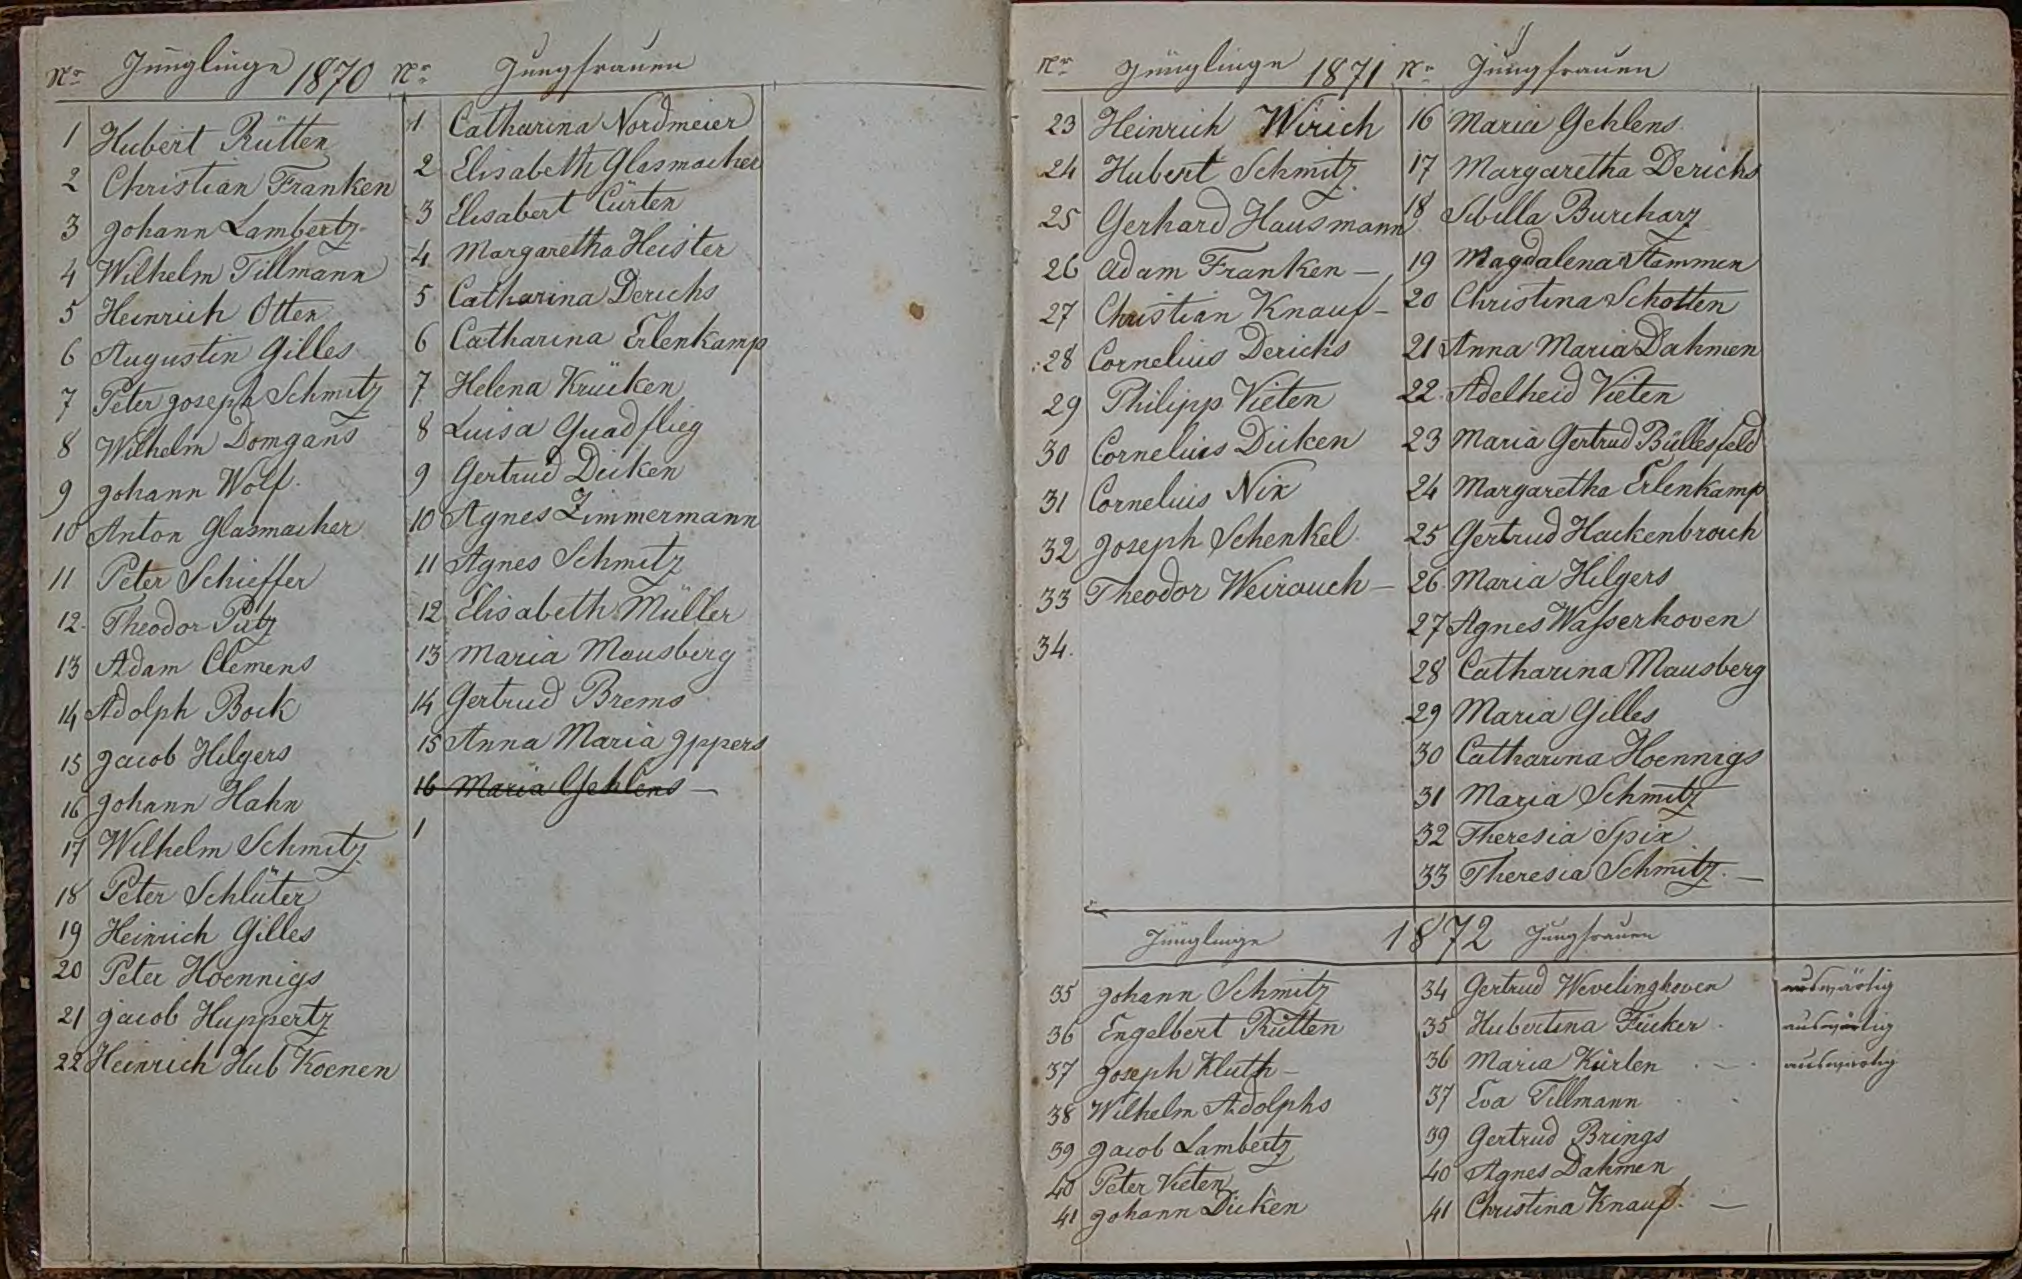 Nr Jünglinge 1870 Nr Jungfrauen
1 Hubert Rütten
2 Christian Franken
3 Johann Lambertz
4 Wilhelm Tillmann
5 Heinrich Otten
6 Augustin Gilles
7 Peter Joseph Schmitz
8 Wilhelm Domgans
9 Johann Wolf.
10 Anton Glasmacher
11 Peter Schieffer
12. Theodor Pütz
13 Adam Clemens
14 Adolph Bock
15 Jacob Hilgers
16 Johann Hahn
17 Wilhelm Schmitz
18 Peter Schlüter
19 Heinrich Gilles
20 Peter Hoennigs
21 Jacob Huppertz
22 Heinrich Hub Koenen
1 Catharina Nordmeier
2 Elisabeth Glasmacher
3 Elisabert Cürten
4 Margaretha Heister
5 Catharina Derichs
6 Catharina Erlenkamp
7 Helena Krücken
8 Luisa Quadflieg
9 Gertrud Dicken
10 Agnes Zimmermann
11 Agnes Schmitz
12 Elisabeth Müller
13 Maria Mausberg
14 Gertrud Brems
15 Anna Maria Ippers
16 Maria Gehlens —
1
Nr Jünglinge 1871 Nr Jungfrauen
23 Heinrich Wirich
24 Hubert Schmitz
25 Gerhard Hausmann
26 Adam Franken —
27 Christian Knauf —
28 Cornelius Derichs
29 Philipp Vieten
30 Cornelius Dicken
31 Cornelius Nix
32 Joseph Schenkel
33 Theodor Weirauch —
34.
16 Maria Gehlens.
17 Margaretha Derichs
18 Sibilla Burcharz
19 Magdalena Stammen
20 Christina Schotten
21 Anna Maria Dahmen
22. Adelheid Vieten
23 Maria Gertrud Büllesfeld
24 Margaretha Erlenkamp
25 Gertrud Hackenbroich
26. Maria Hilgers
27 Agnes Wasserhoven
28 Catharina Mausberg
29 Maria Gilles
30 Catharina Hoennigs
31 Maria Schmitz
32 Theresia Spix
33 Theresia Schmitz. —
Jünglinge 1872 Jungfrauen
35 Johann Schmitz
36 Engelbert Rütten
37 Joseph Kluth —
38 Wilhelm Adolphs
39 Jacob Lambertz
40 Peter Vieten
41 Johann Dicken
34 Gertrud Wevelinghoven auswärtig
35 Hubertina Fücker. auswärtig
36 Maria Kürlen . — . auswärtig
37 Eva Tillmann
39 Gertrud Brings
40 Agnes Dahmen
41 Christina Knauf. —